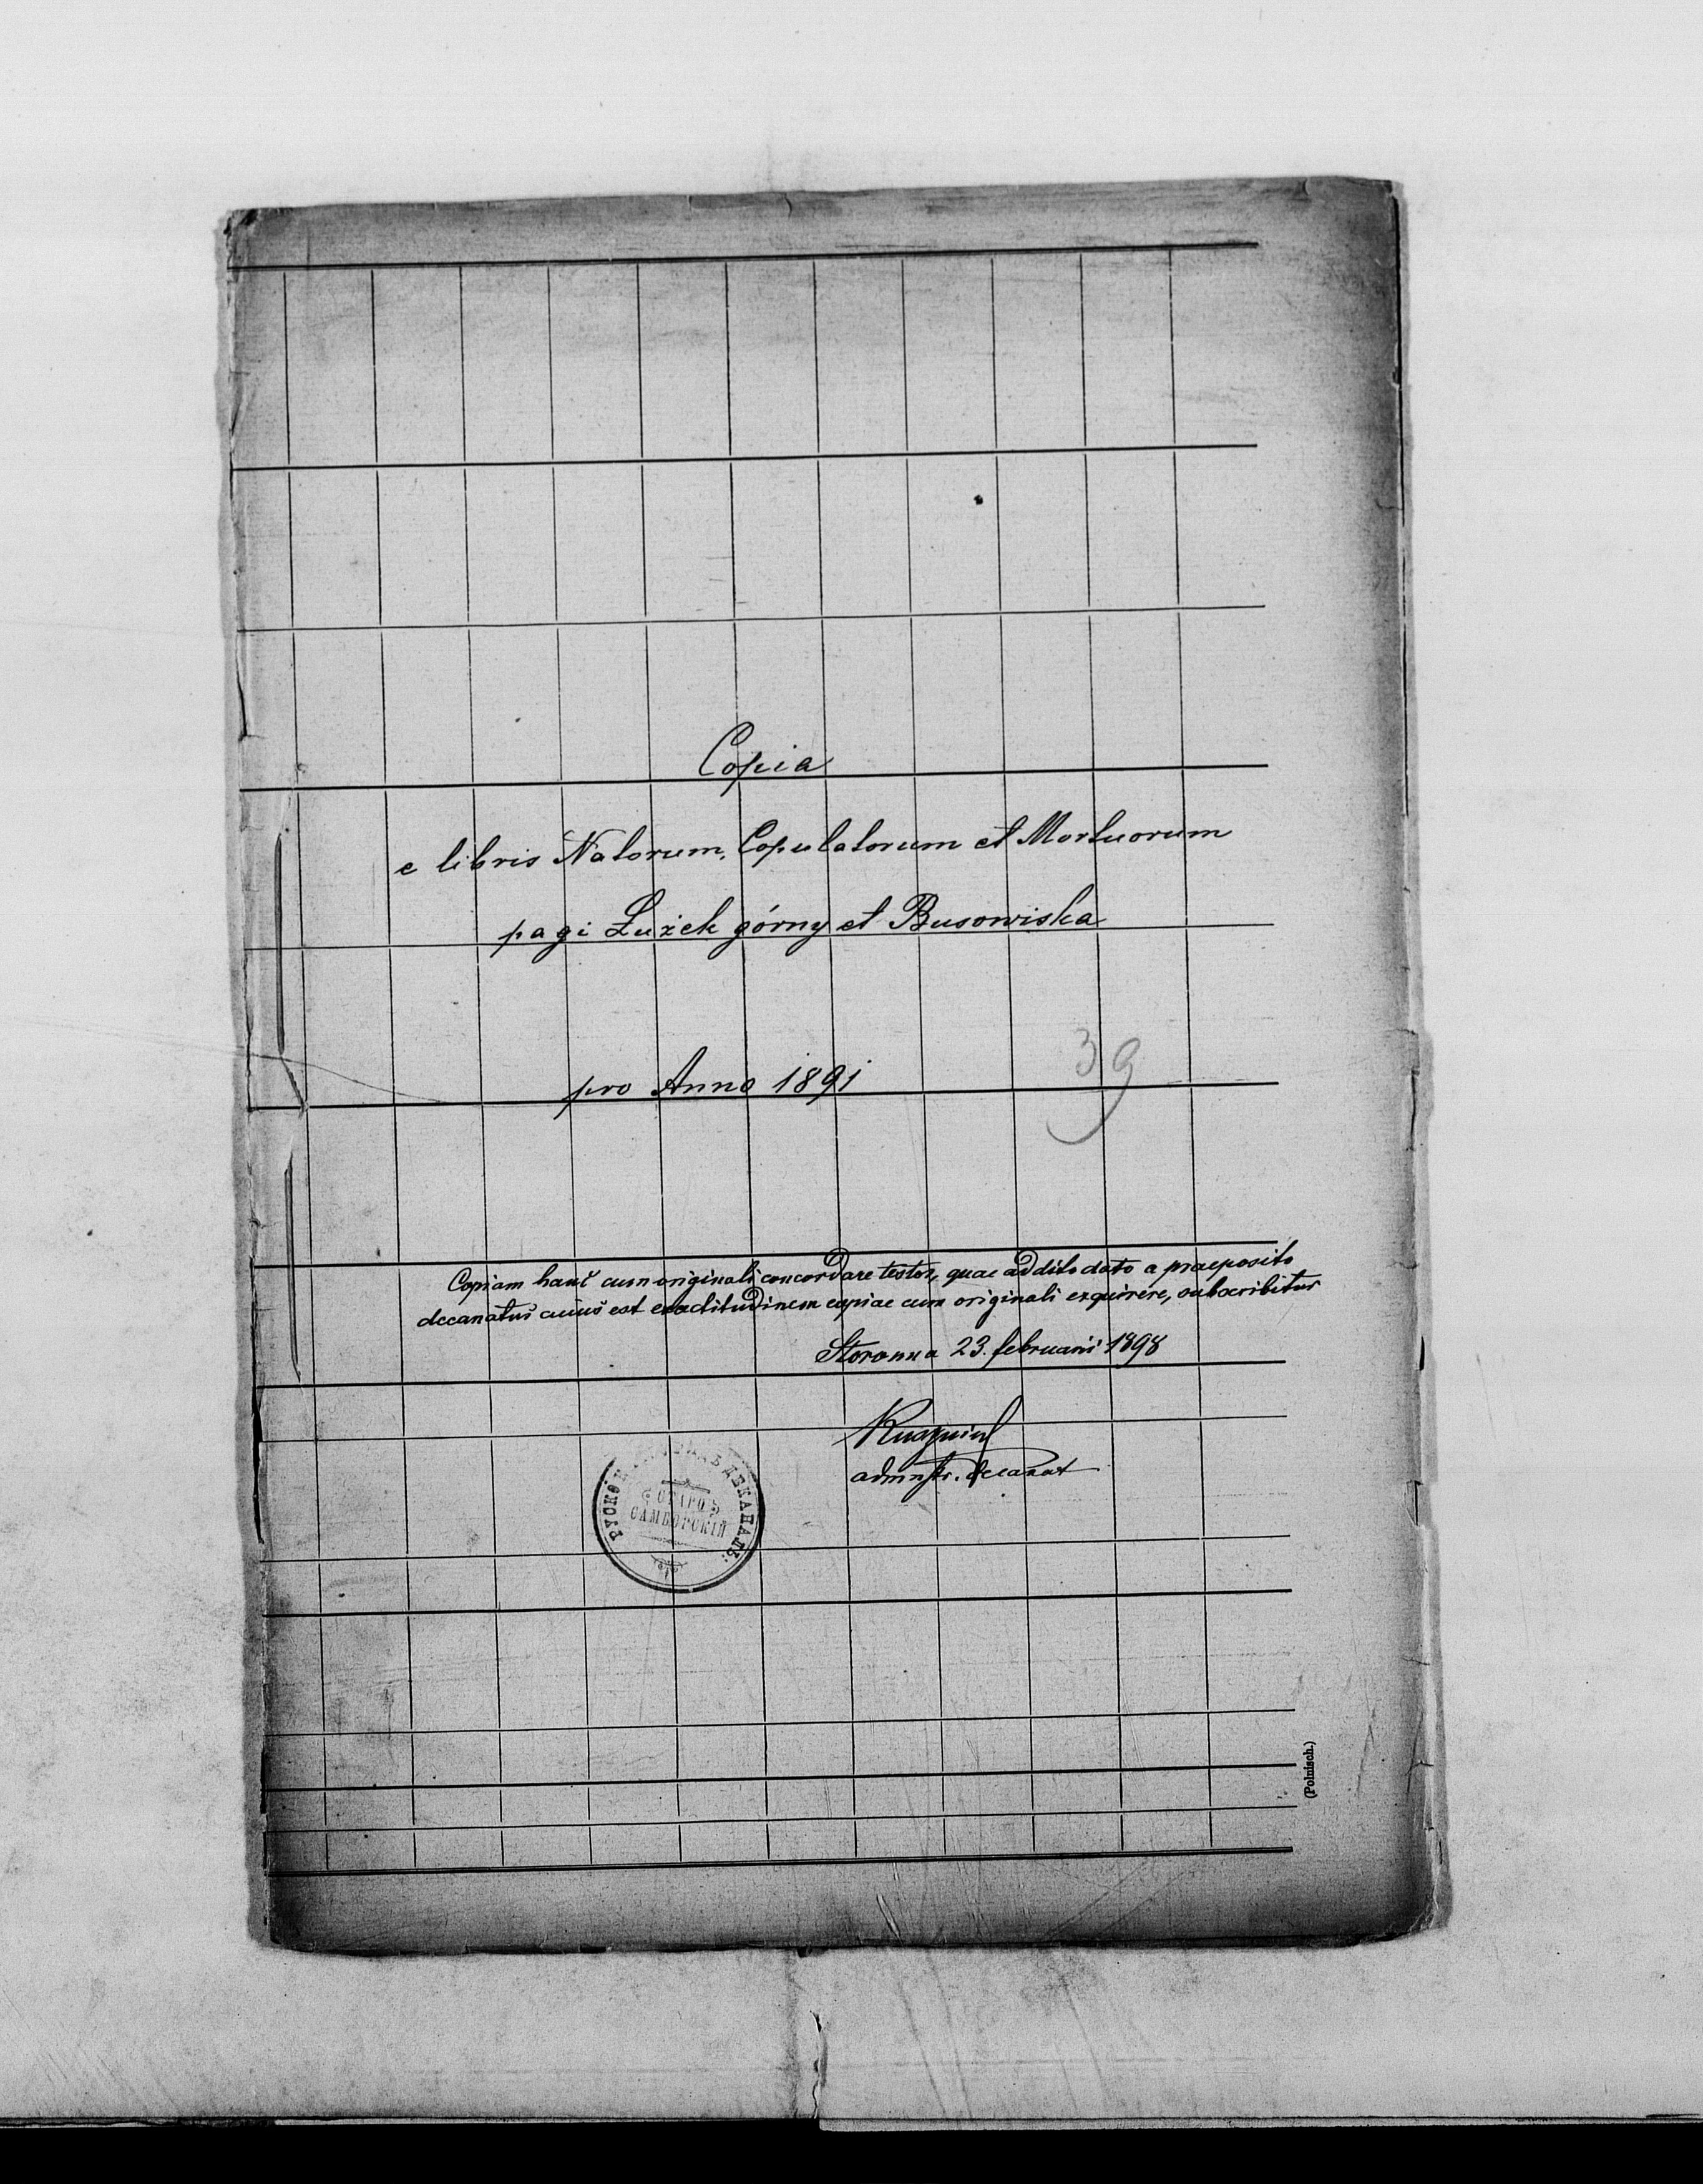 Copia
e libris Natorum, Copulatorum et Mortuorum
pagi Łużek górny et Busowiska
pro Anno 1891
39
Copiam hanc cum originali concordare testor, quae addito dato a praeposito
decanatus cuius est exactitudinem copiae cum originali exquirere, subscribitur
Storonna 23. februarii 1898
admnstr. decanat
РУСКОЙ ДЕКАНАЛЬ.
СТАРО
САМБОРСКІЙ
(Polnisch.)